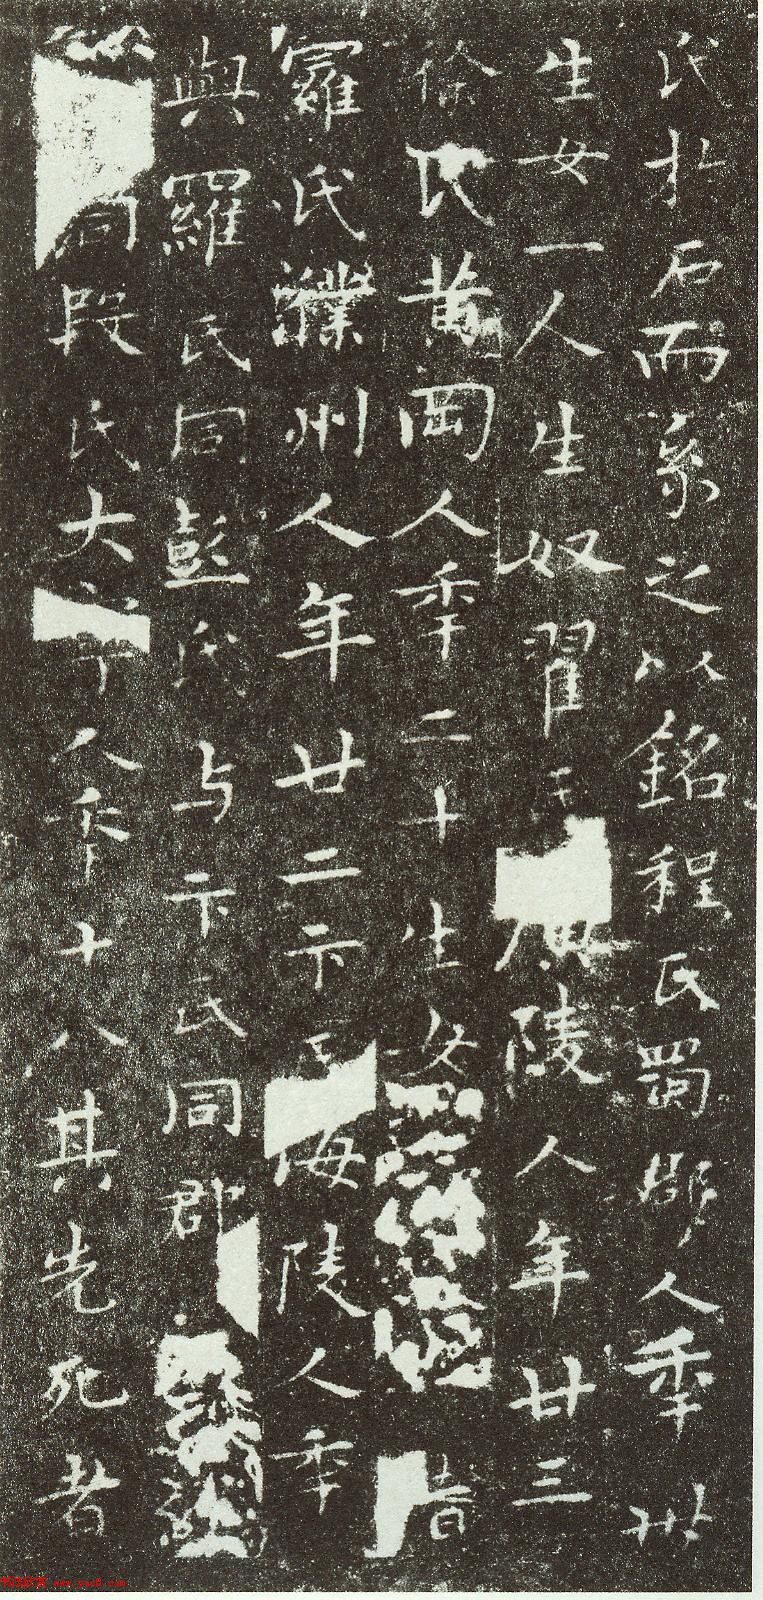 氏於石而系之以銘程氏蜀郡人年卅
生女一人生奴翟氏廣陵人年廿三
徐氏黃岡人年二十生女皆
羅氏濮州人年廿二卞氏海陵人年
與羅氏同彭氏与卞氏同郡
同段氏大人年十八其先死者
www.yac8.com